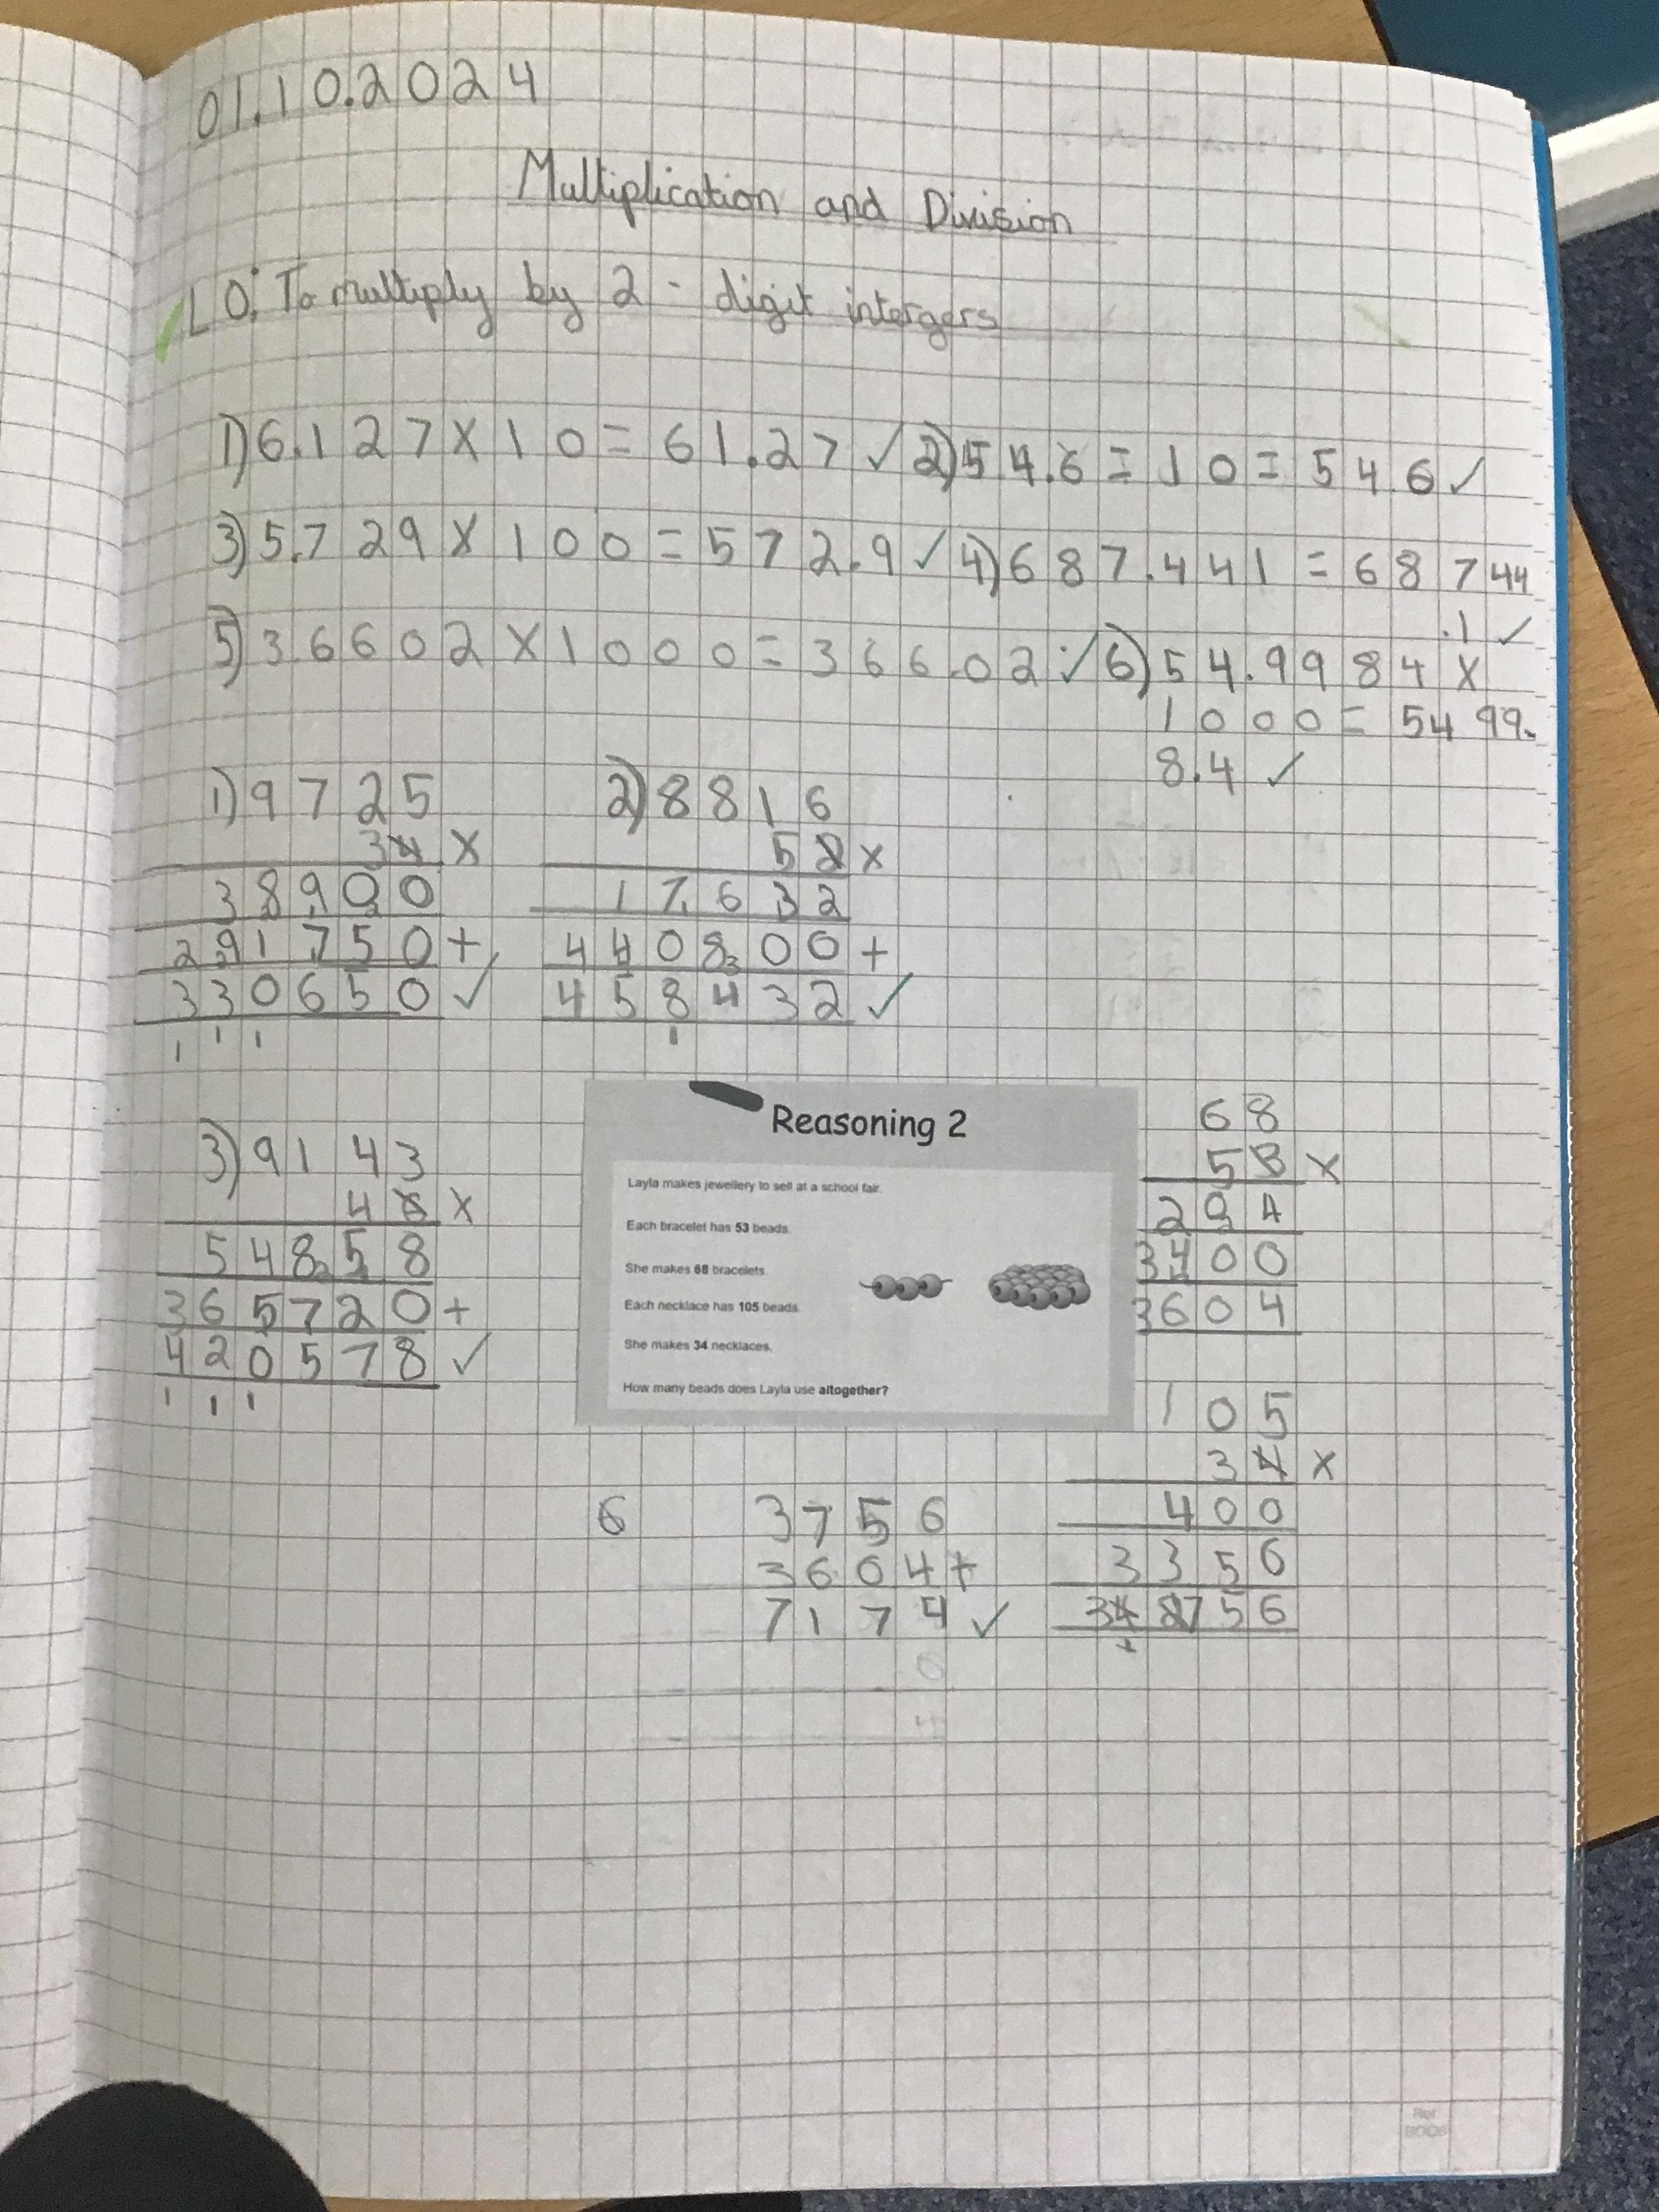 01.10.2024
Multiplication and Division
LO: To multiply by 2 - digit intergers
1) 6.127 X 10 = 61.27 ✓ 2) 54.6 = 10 = 546 ✓
3) 5.729 X 100 = 572.9 ✓ 4) 687.441 = 68744
.1 ✓
5) 36602 X 1000 = 366.02 ✓ 6) 54.9984 X
1000 = 5499.
8.4 ✓
1) 9725
34 X
38900
291750 +
330650 ✓
1 1 1
2) 8816
52 x
17632
440800 +
458432 ✓
1
3) 9143
46 X
54858
365720 +
420578 ✓
1 1 1
Reasoning 2
Layla makes jewellery to sell at a school fair.
Each bracelet has 53 beads.
She makes 68 bracelets.
Each necklace has 105 beads.
She makes 34 necklaces.
How many beads does Layla use altogether?
68
53 X
204
3400
3604
105
34 X
400
3356
3756
6
3756
3604 +
7174 ✓